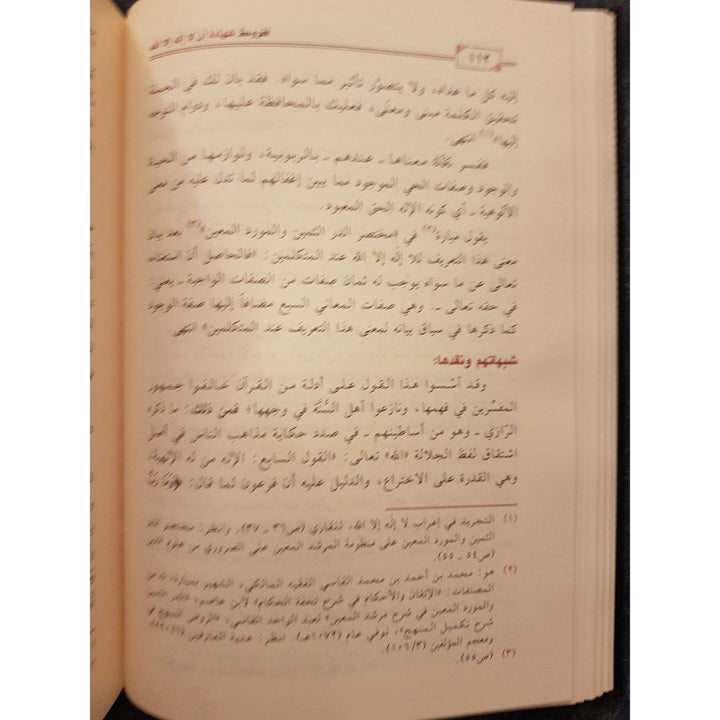 ١١٢
شروط شهادة أن لا إله إلا الله
إليه كل ما عداه، ولا يتصور تأثير مما سواه. فقد بان لك في الجملة
تحقيق الكلمة مبنى ومعنًى، فعليك بالمحافظة عليها، ودوام التوجه
إليها»(١) انتهى.
ففسر رَحِمَهُ اللَّهُ معناها ـ عندهم ـ بالربوبية، ولوازمها من الحياة
والوجود وصفات الحي الموجود مما يبين إغفالهم لما تدل عليه من معنى
الألوهية ـ أي كونه الإله الحق المعبود.
يقول ميارة(٢) في «مختصر الدر الثمين والمورد المعين»(٣) بعد بيان
معنى هذا التعريف للا إله إلا الله عند المتكلمين: «فالحاصل أن استغناءه
تعالى عن ما سواه يوجب له ثمان صفات من الصفات الواجبة ـ يعني:
في حقه تعالى ـ. وهي صفات المعاني السبع مضافاً إليها صفة الوجود
كما ذكرها في سياق بيانه لمعنى هذا التعريف عند المتكلمين» انتهى.
شبهاتهم ونقدها:
وقد أسّسوا هذا القول على أدلة من القرآن خالفوا جمهور
المفسِّرين في فهمها، ونازعوا أهل السُّنَّة في وجهها؛ فمن ذلك: ما ذكره
الرازي ـ وهو من أساطينهم ـ في صدد حكاية مذاهب الناس في أصل
اشتقاق لفظ الجلالة «الله» تعالى: «القول السابع: الإله من له الإلهية،
وهي القدرة على الاختراع، والدليل عليه أن فرعون لما قال: ﴿وَمَا رَبُّ
(١) التجريد في إعراب لا إله إلا الله، (ص٣٦ ـ ٣٧). وانظر: مختصر الدر
الثمين والمورد المعين على منظومة المرشد المعين على الضروري من علوم الدين
(ص٥٤ ـ ٥٥).
(٢) هو: محمد بن أحمد بن محمد الفاسي الفقيه المالكي، الشهير بميارة، له من
المصنفات: «الإتقان والأحكام في شرح تحفة الحكام» لابن عاصم، «الدر الثمين
والمورد المعين في شرح مرشد المعين» لعبد الواحد الفاسي، «الروض المبهج في
شرح تكميل المنهج»، توفي عام (١٠٧٢هـ). انظر: هدية العارفين
ومعجم المؤلفين
(٣) (ص٥٥).